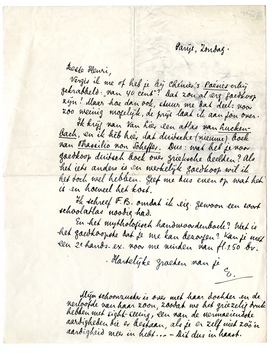 Parijs, Zondag.
Beste Henri,
Vergis ik me of heb je bij Chénier's Poésies erbij
gekrabbeld: van 40 cent? Dat zou al erg goedkoop
zijn! Maar hoe dan ook, stuur me dat deel; voor
zoo weinig mogelijk, de prijs laat ik aan jou over.
Ik krijg van Van hier een atlas van
en ik heb hier, dat deutsche (nieuwe) boek
van Thassilo von Scheffer. Dus: wat heb je voor
goedkoop duitsch boek over grieksche beelden? Als
het iets anders is en werkelijk goedkoop wil ik
het toch wel hebben. Geef me dus even op wat het
is en hoeveel het kost.
Ik schreef F.B. omdat ik erg gewoon een soort
schoolatlas noodig had.
En het mythologisch handwoordenboek? Wat is
het goedkoopste dat je me kan bezorgen? Kan je niet
een 2e hands. ex. voor me vinden van fl. 1.50 bv.
Hartelijke groeten van je
E.
Mijn schoonzuster is over met haar dochter en de
verloofde van haar zoon, zoodat we het griezelig druk
hebben met sight-seeing, een van de vermoeiendste
aardigheden die er bestaan, als je er zelf niet zoo'n
aardigheid meer in hebt... — Dit dus in haast.